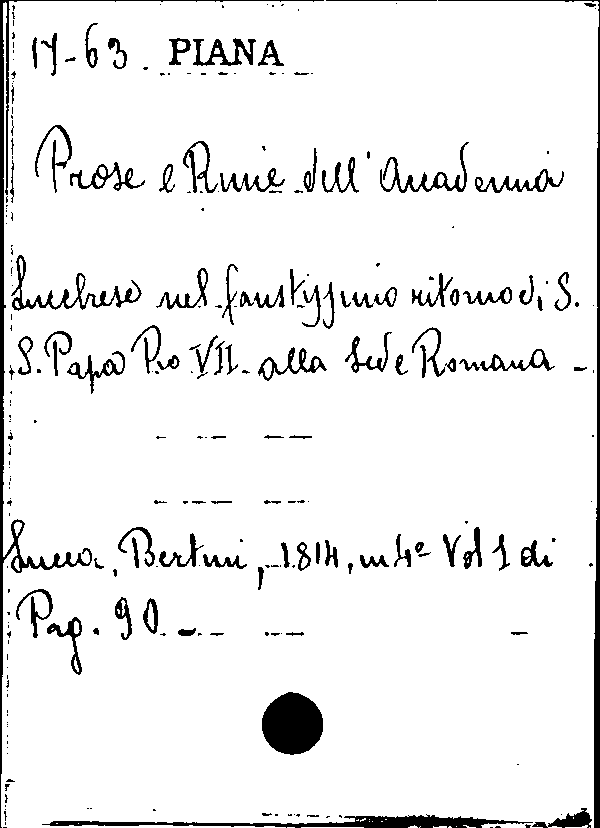 17-63. PIANA
Prose e Rime dell'Accademia
Lucchese nel faustissimo ritorno di S.
S. Papa Pio VII. alla Sede Romana -
Lucca, Bertini, 1814, in 4º Vol 1 di
Pag. 90 -